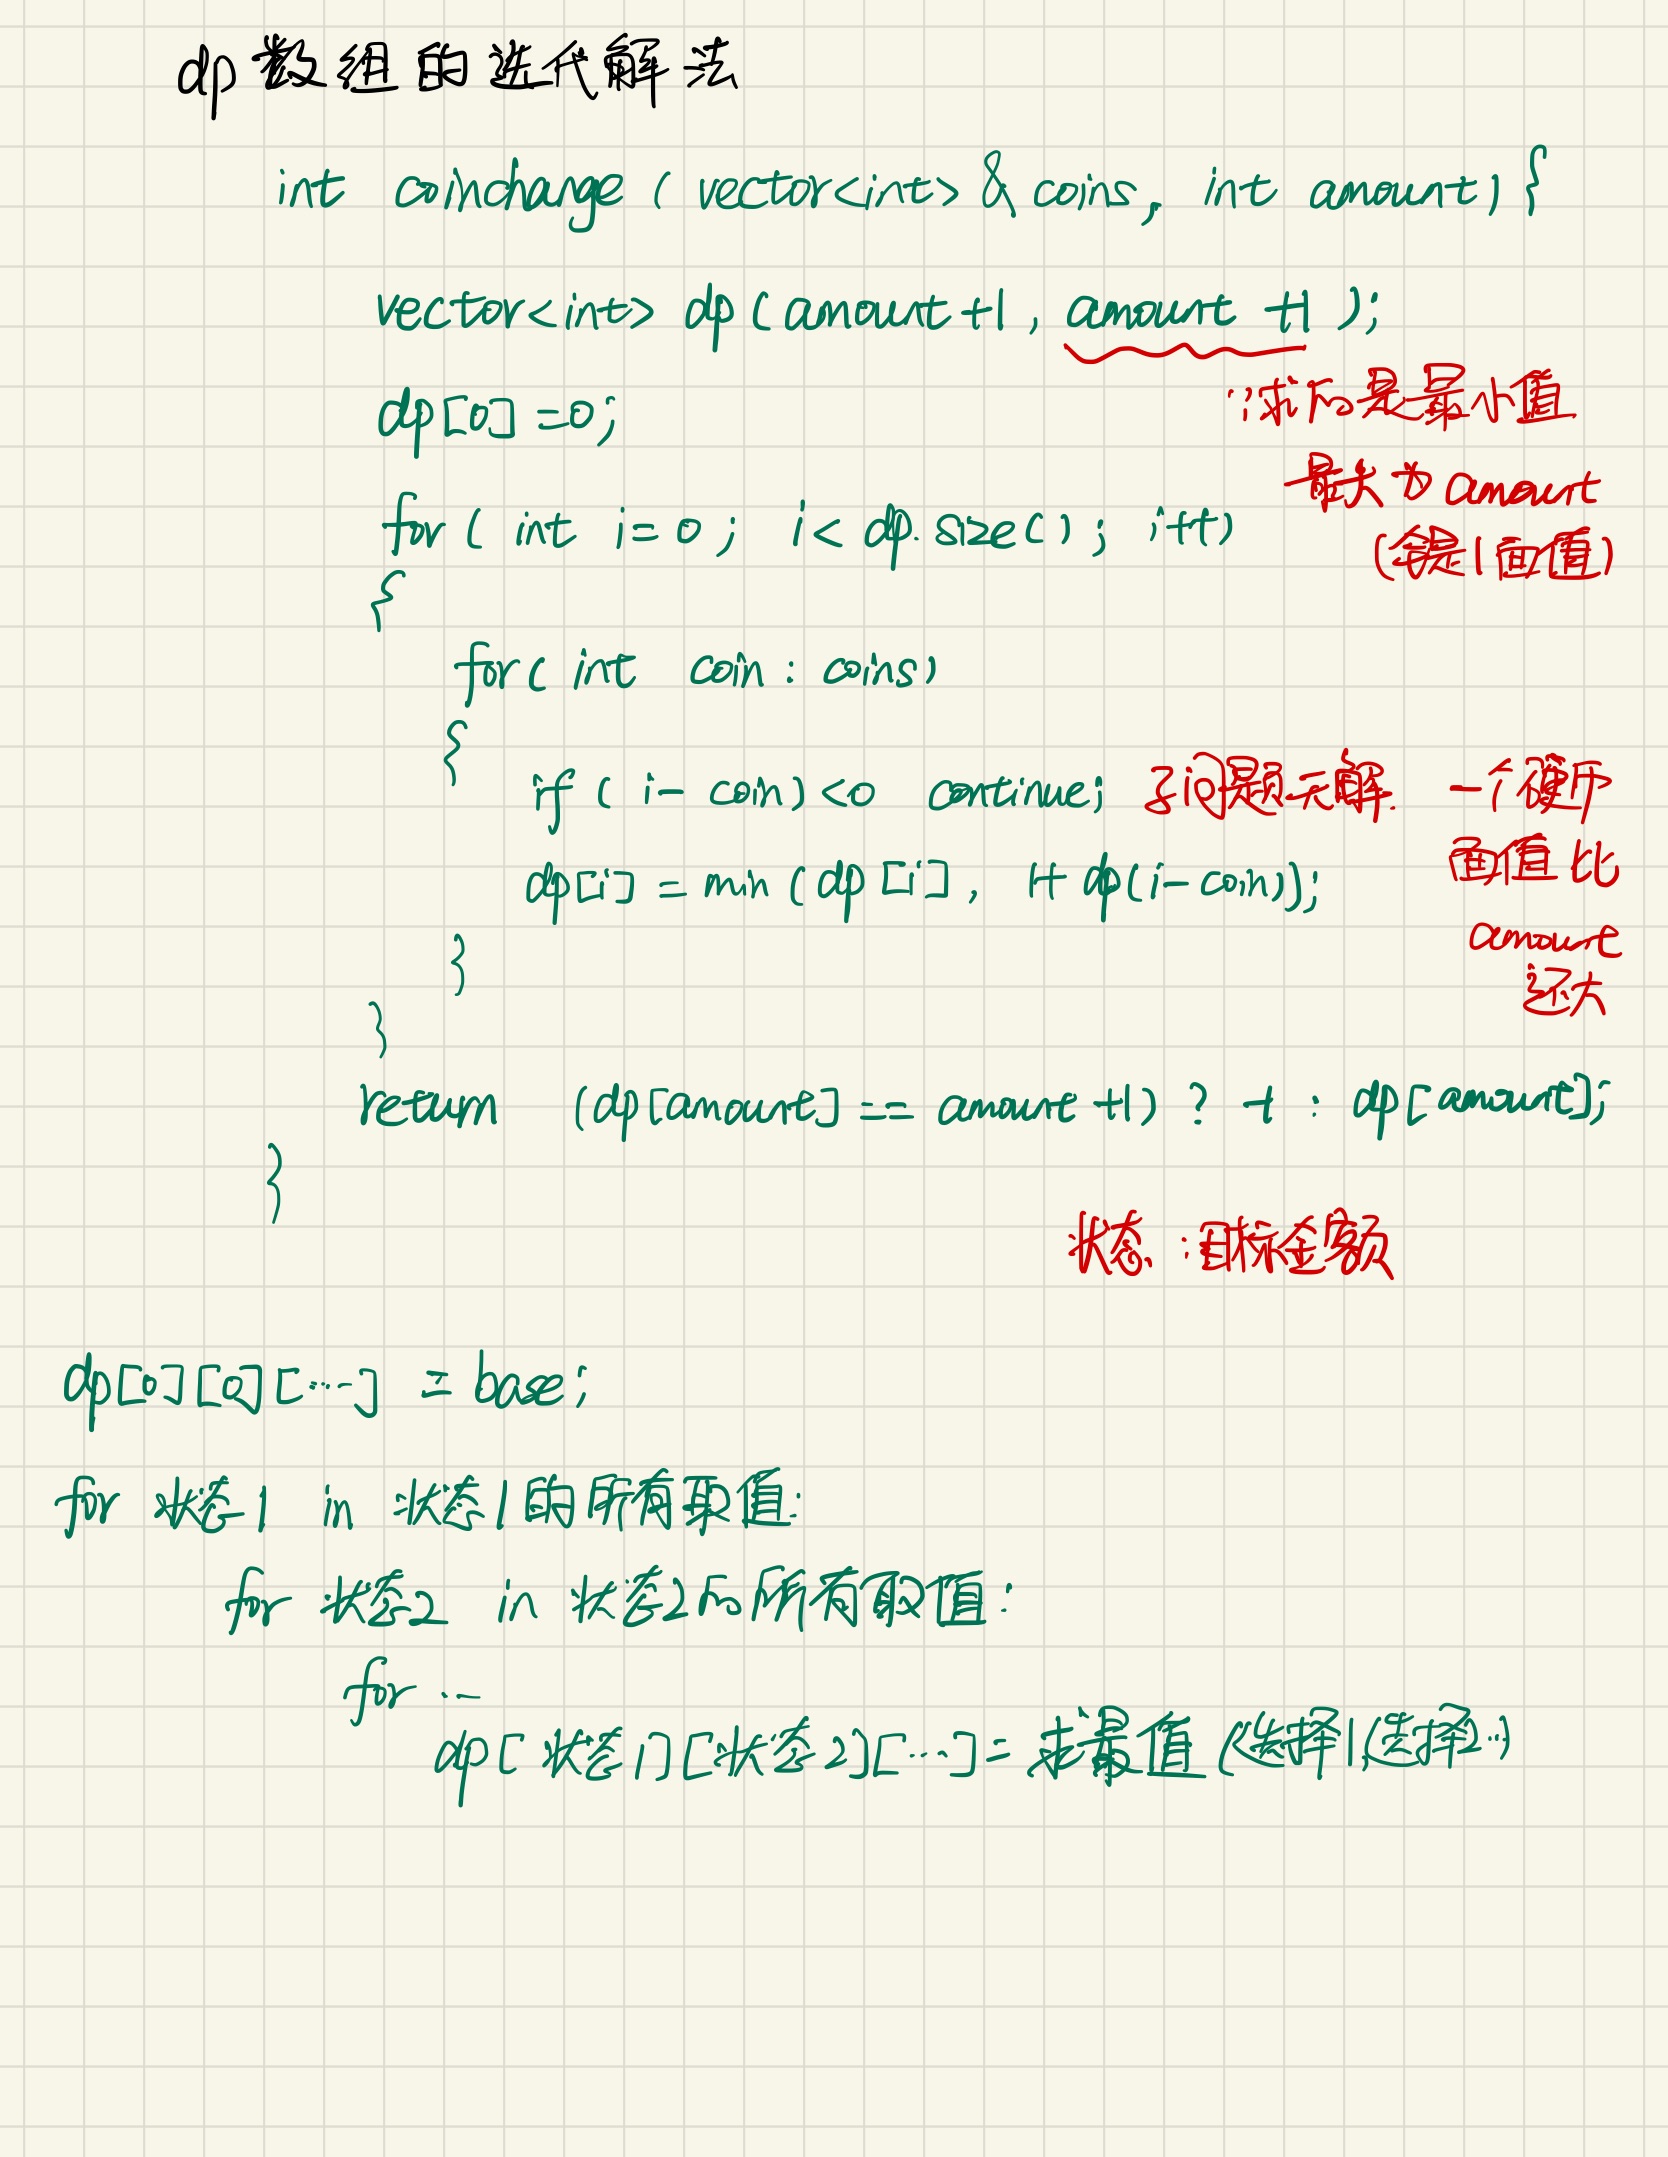 dp数组的迭代解法
int coinchange (vector<int> & coins, int amount) {
vector<int> dp (amount+1, amount +1);
dp[0] =0;
∵求的是最小值
最大为 amount
for ( int i=0; i< dp.size(); i++)
(全是1面值)
{
for( int coin : coins)
{
if ( i- coin) <0 continue; 子问题无解. 一个硬币
面值比
dp[i] = min (dp[i], 1+ dp(i-coin));
amount
}
还大
}
return (dp[amount] == amount +1) ? -1 : dp[amount];
}
状态:目标金额
dp[0][0][...] = base;
for 状态1 in 状态1的所有取值:
for 状态2 in 状态2的所有取值:
for ...
dp[状态1][状态2][...] = 求最值(选择1,选择2...)